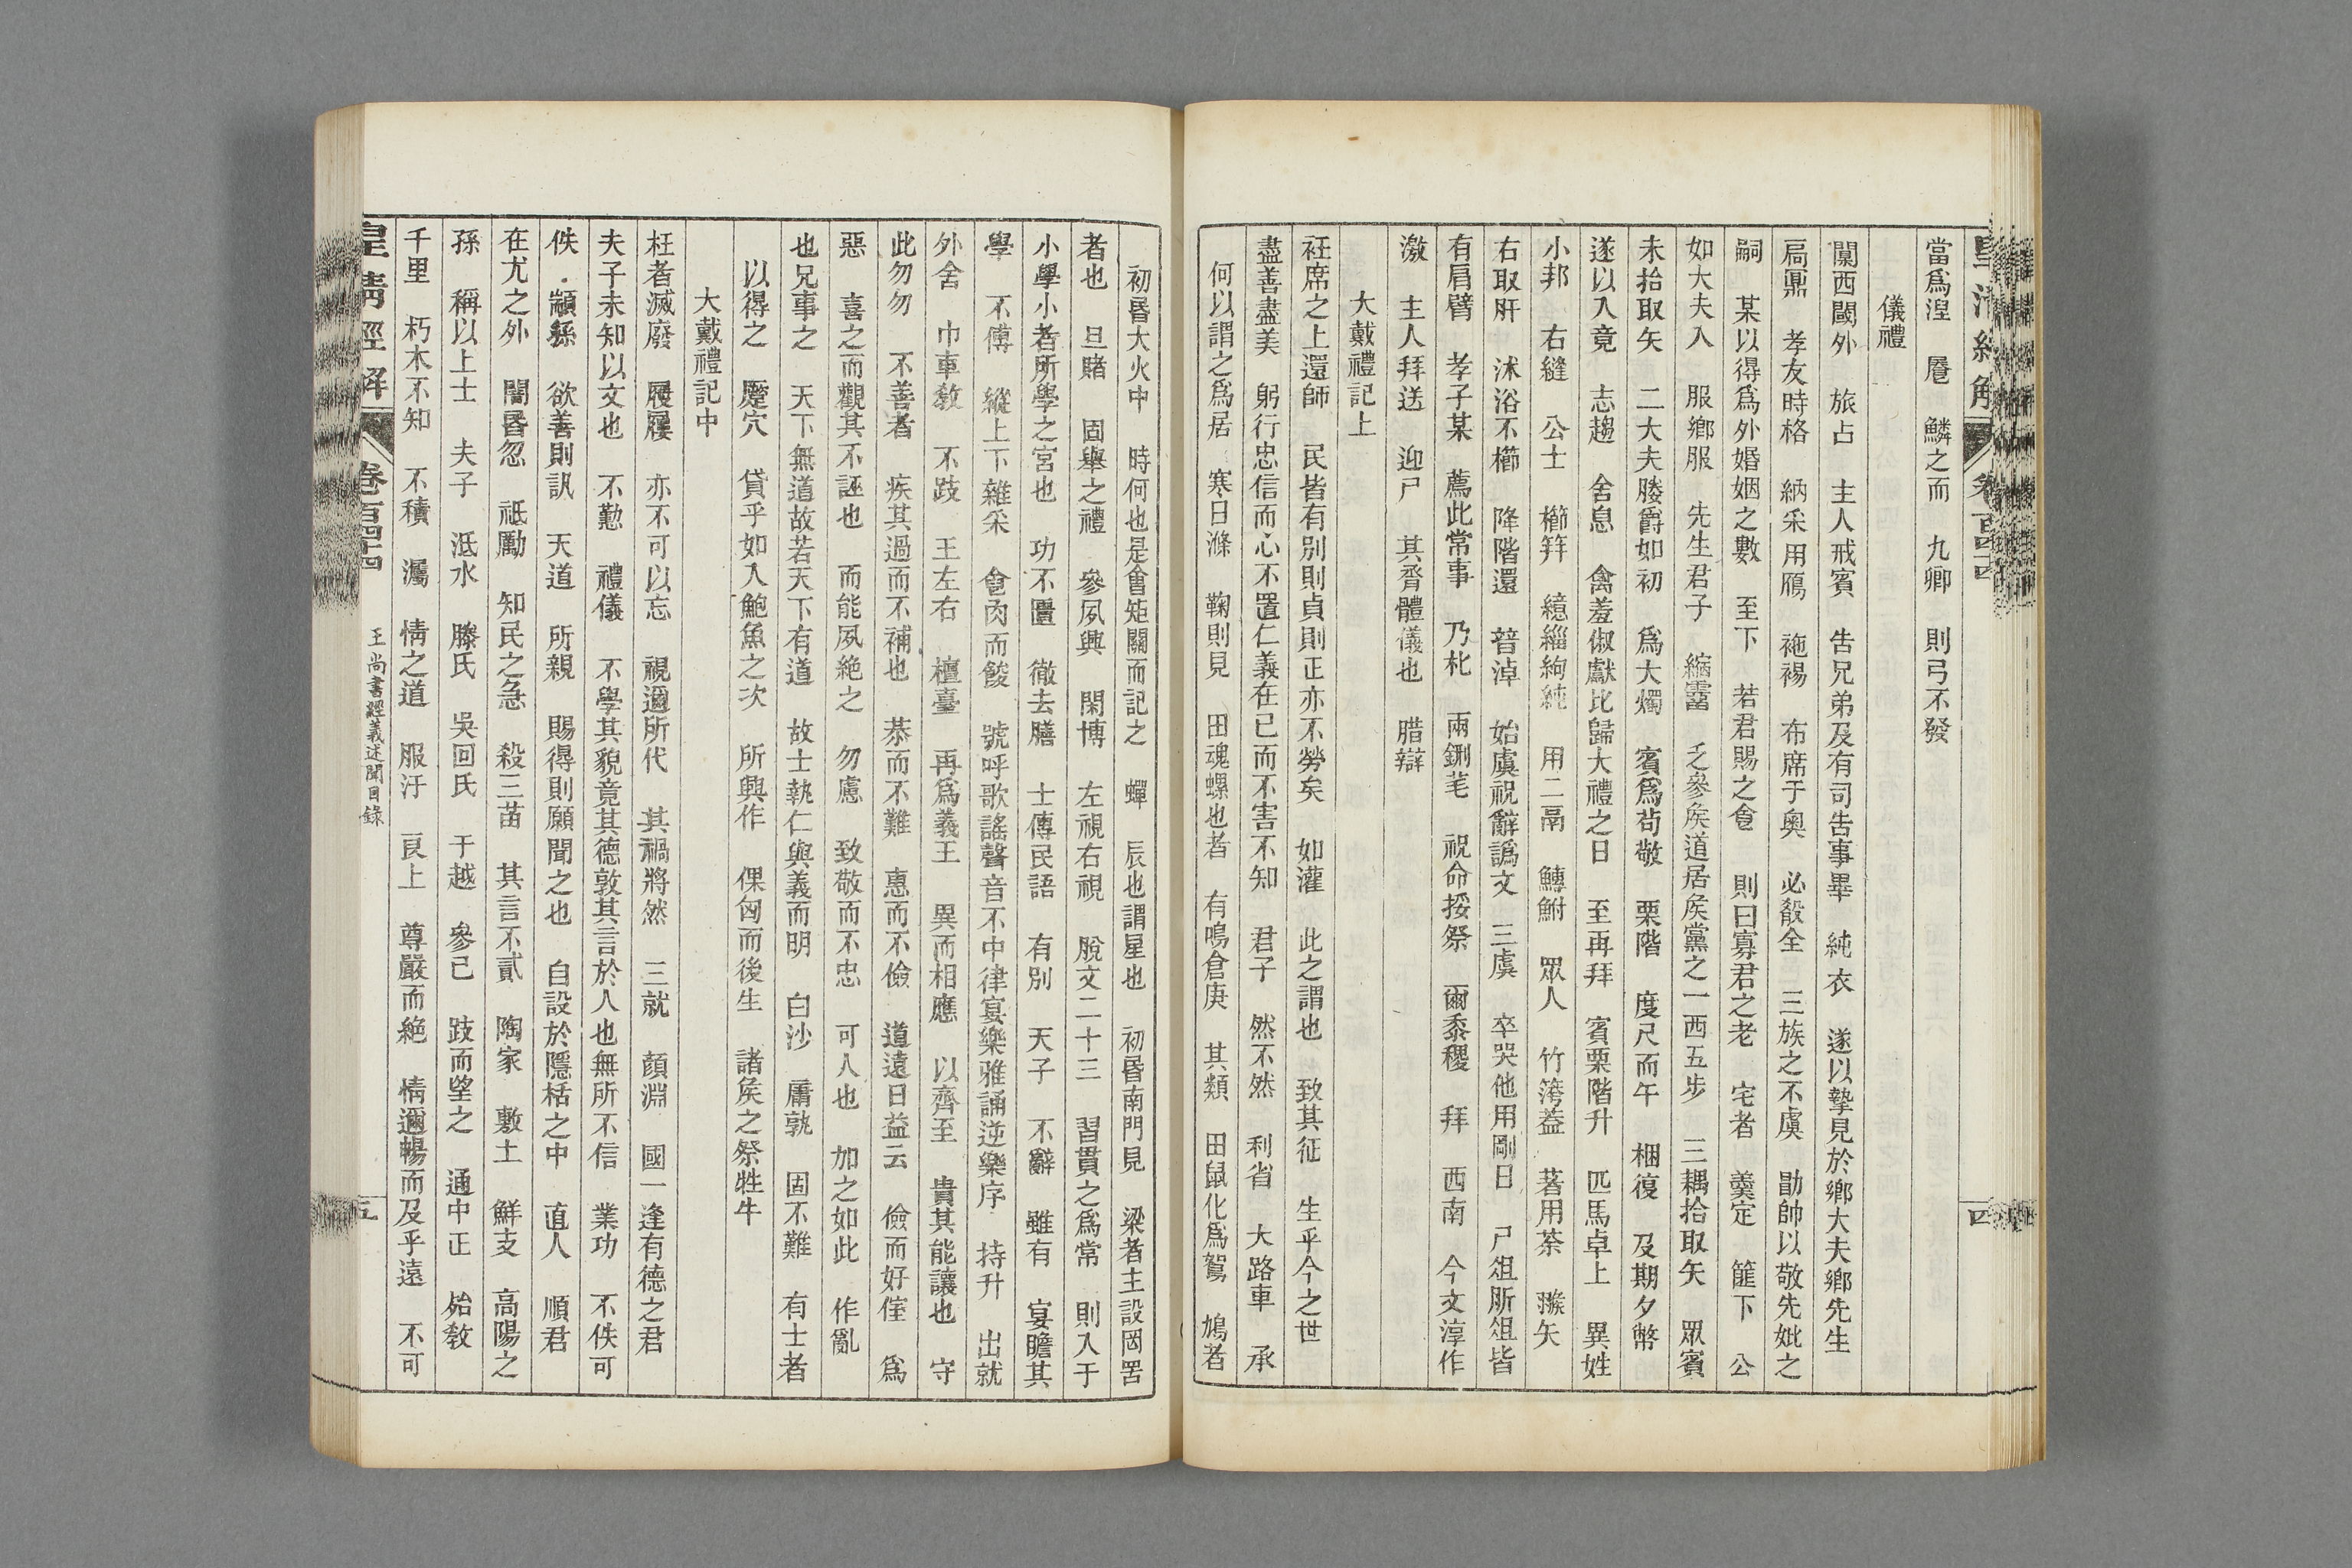 當爲湼　鱗之而　九卿　則弓不發
儀禮
闑西閾外　旅占　主人戒賓　告兄弟及有司告事畢　純衣　遂以摯見於鄉大夫鄉先生
扃鼏　孝友時格　納采用鴈　袘裼　布席于奧　必殽全　三族之不虞　勖帥以敬先妣之
嗣　某以得爲外婚姻之數　至下　若君賜之食　則曰寡君之老　宅者　羹定　篚下　公
如大夫入　服鄉服　先生君子　縮霤　乏參矦道居矦黨之一西五步　三耦拾取矢　眾賓
未拾取矢　二大夫媵爵如初　爲大燭　賓爲苟敬　栗階　度尺而午　梱復　及期夕幣
遂以入竟　志趨　舍息　禽羞俶獻比歸大禮之日　至再拜　賓栗階升　匹馬卓上　異姓
小邦　右縫　公士　櫛笄　繶緇絇純　用二鬲　鱄鮒　眾人　竹䈬蓋　著用荼　猴矢
右取肝　沐浴不櫛　降階還　暜淖　始虞祝辭譌文　三虞　卒哭他用剛日　尸俎肵俎皆
有肩臂　孝子某　薦此常事　乃朼　兩鉶芼　祝命挼祭　爾黍稷　拜　西南　今文淳作
激　主人拜送　迎尸　其脀體儀也　腊辯
大戴禮記上
衽席之上還師　民皆有别則貞則正亦不勞矣　如灌　此之謂也　致其征　生乎今之世
盡善盡美　躬行忠信而心不置仁義在已而不害不知　君子　然不然　利省　大路車　承
何以謂之爲居　寒日滌　鞠則見　田魂螺也者　有鳴倉庚　其類　田鼠化爲鴽　鳩者
初昬大火中　時何也是會矩關而記之　蟬　辰也謂星也　初昬南門見　梁者主設罔罟
者也　旦賭　固舉之禮　參夙興　閑博　左視右視　脫文二十三　習貫之爲常　則入于
小學小者所學之宮也　功不匱　徹去膳　士傳民語　有別　天子　不辭　雖有　宴瞻其
學　不傅　縱上下雜采　食肉而餕　號呼歌謠聲音不中律宴樂雅誦逆樂序　持升　出就
外舍　巾車敎　不跂　王左右　檀臺　再爲義王　異而相應　以齊至　貴其能讓也　守
此勿勿　不善者　疾其過而不補也　恭而不難　惠而不儉　道遠日益云　儉而好㑌　爲
惡　喜之而觀其不誣也　而能夙絶之　勿慮　致敬而不忠　可人也　加之如此　作亂
也兄事之　天下無道故若天下有道　故士執仁與義而明　白沙　庸孰　固不難　有士者
以得之　蹷穴　貸乎如入鮑魚之次　所興作　倮匈而後生　諸矦之祭牲牛
大戴禮記中
枉者滅廢　屨屨　亦不可以忘　視邇所代　其禍將然　三就　顏淵　國一逢有德之君
夫子未知以文也　不懃　禮儀　不學其貌竟其德敦其言於人也無所不信　業功　不佚可
佚　顓孫　欲善則訊　天道　所親　賜得則願聞之也　自設於隱栝之中　直人　順君
在尤之外　闇昬忽　祗勵　知民之急　殺三苗　其言不貳　陶家　敷土　鮮支　高陽之
孫　稱以上士　夫子　泜水　滕氏　吳回氏　于越　參已　跂而望之　通中正　始敎
千里　朽木不知　不積　濁　情之道　服汙　㫐上　尊嚴而絶　情邇暢而及乎遠　不可
皇清經解　卷百四十四　王尚書經義述聞目錄　五